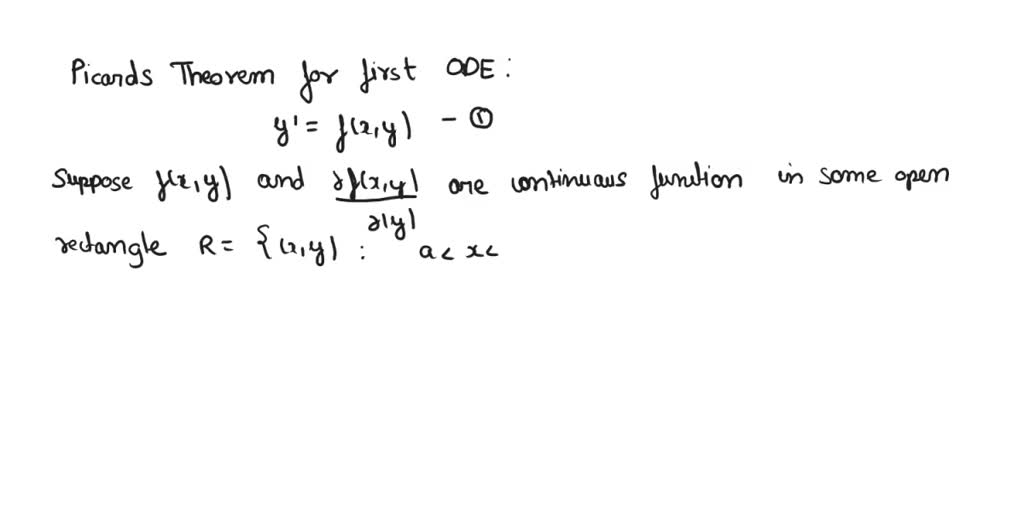 Picards Theorem for first ODE:
y' = f(x,y) - ①
Suppose f(x,y) and ∂f(x,y)/∂(y) are continuous function in some open
rectangle R = {(x,y) : a < x <